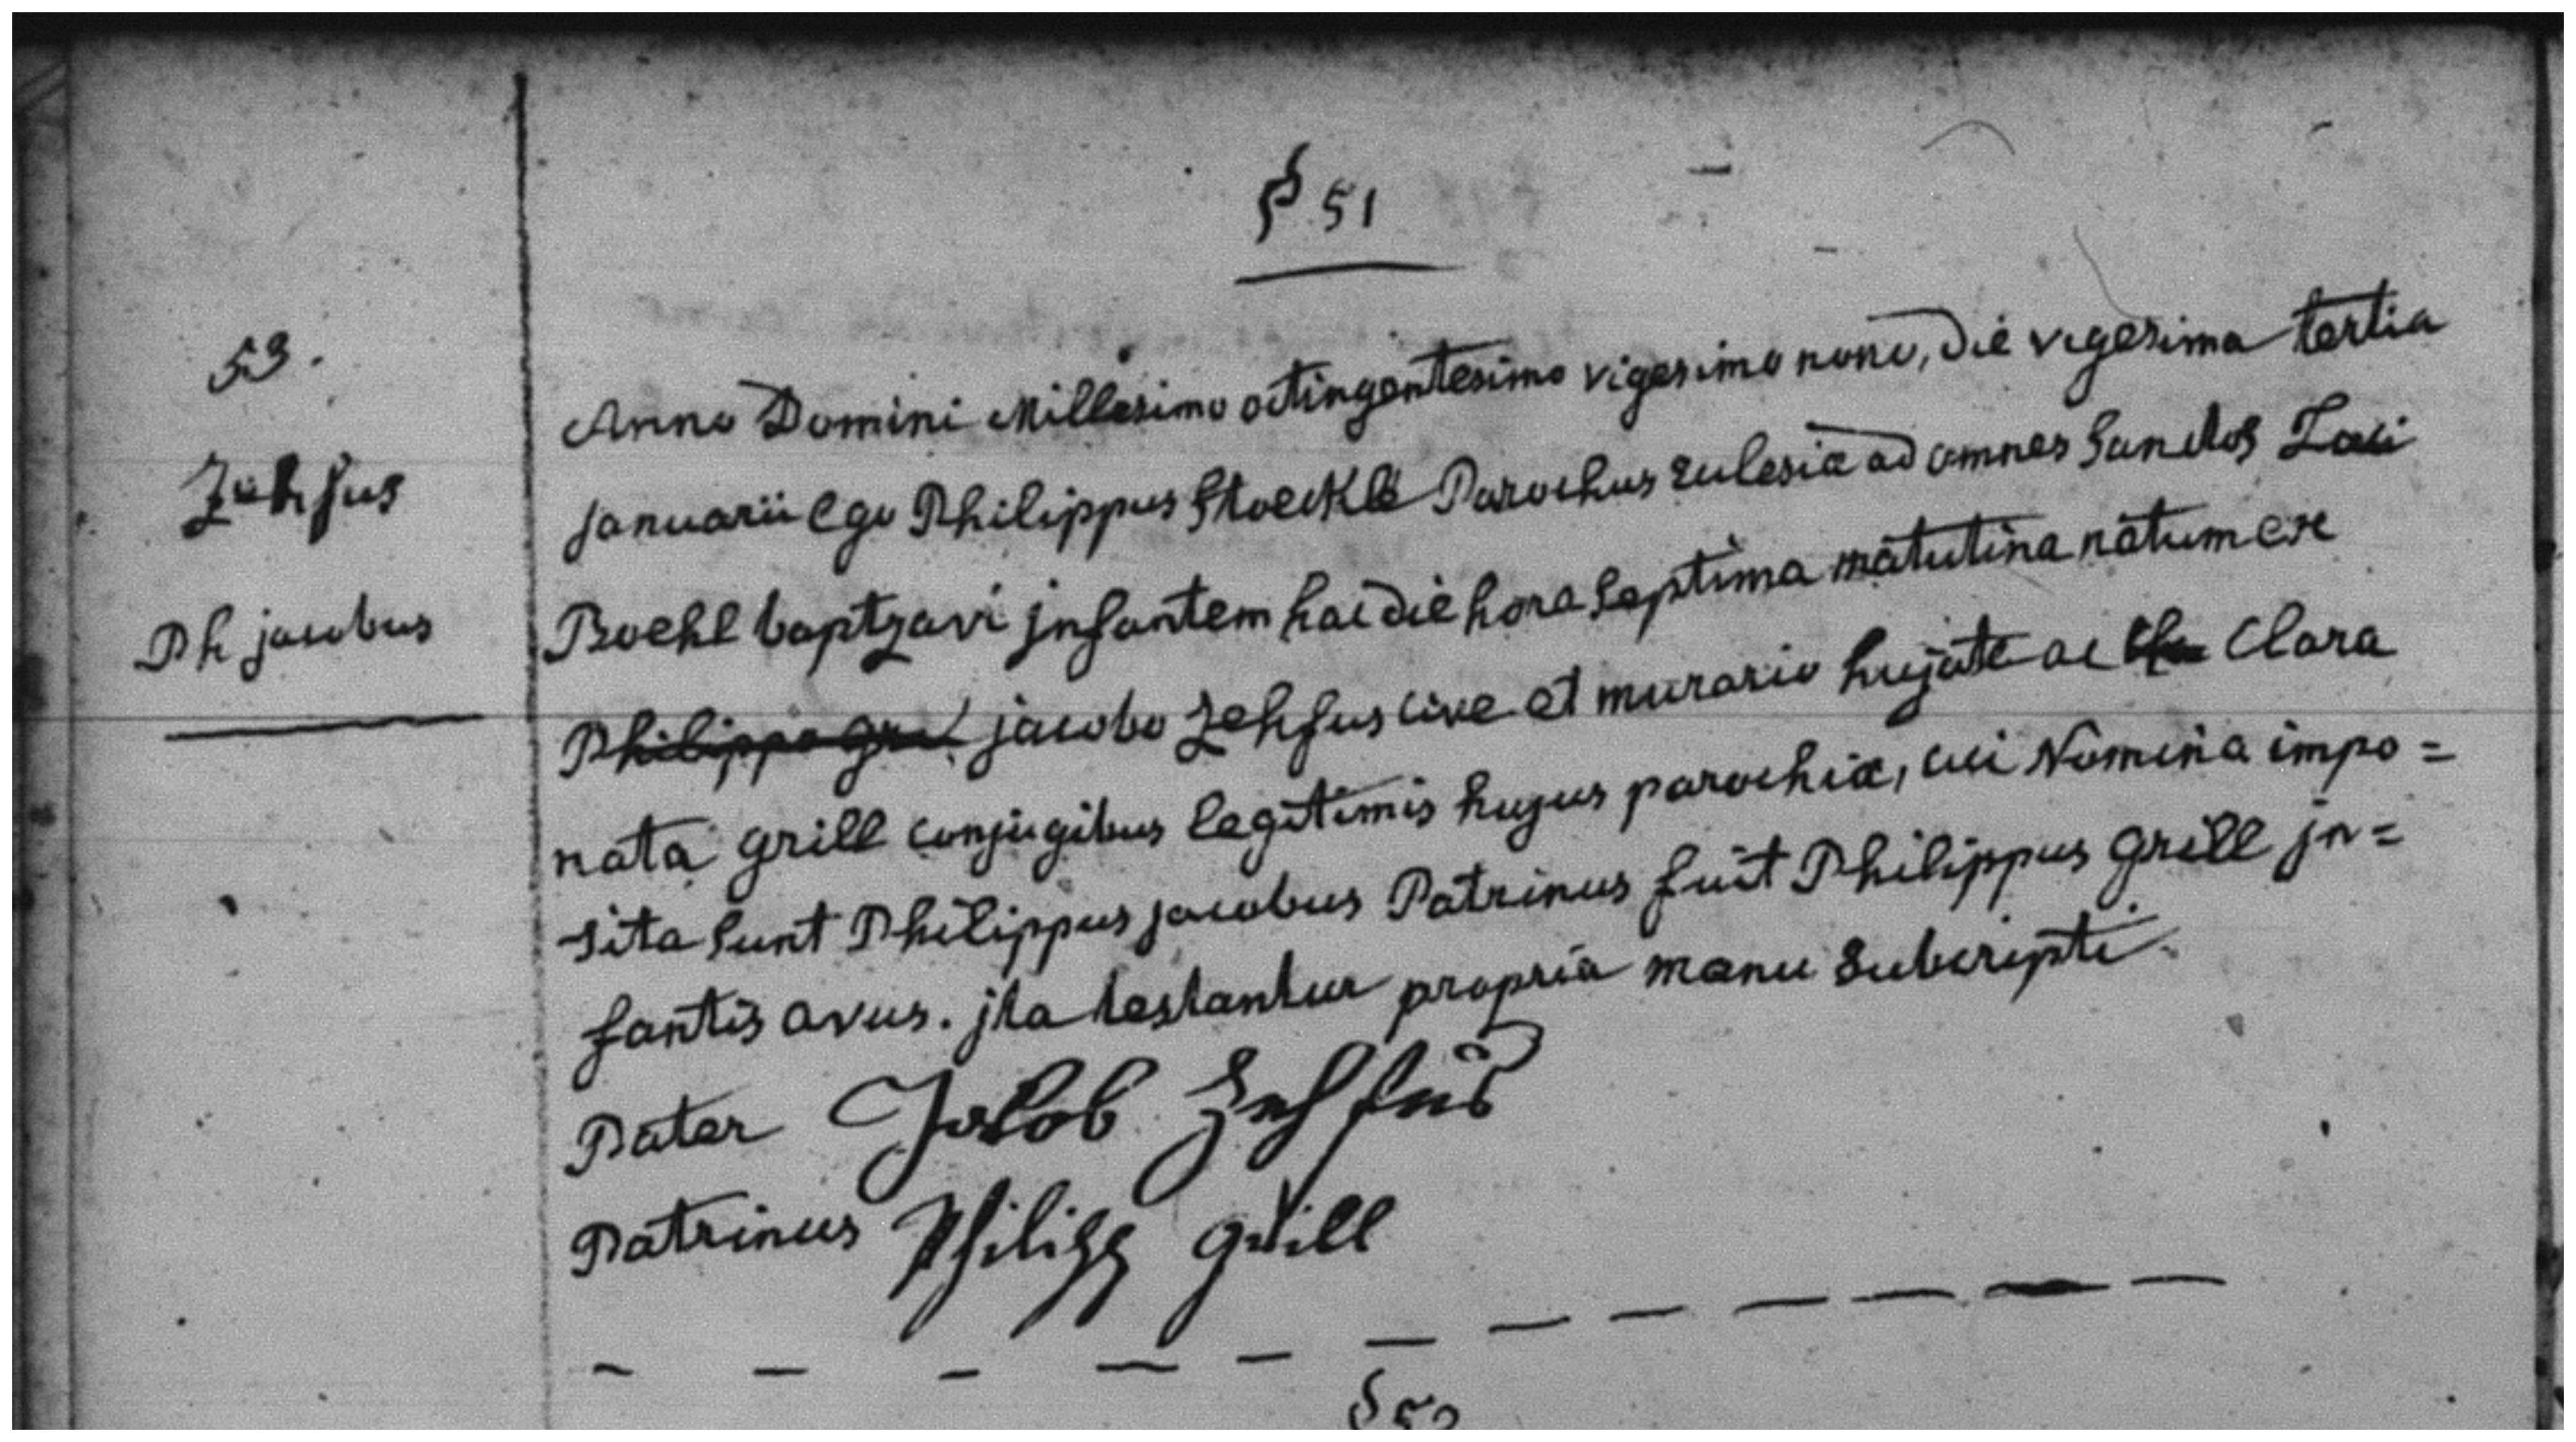 § 51
53.
Zehfus
Ph jacobus
Anno Domini Millesimo octingentesimo vigesimo nono, Die vigesima tertia
januarii ego Philippus Stoeckle Parochus Eclesiæ ad omnes Sanctos Loci
Boehl baptzavi jnfantem hac die hora Septima matutina natum ex
Philippo gril jacobo Zehfus cive et murario hujate ac Cla Clara
nata grill conjugibus legitimis hujus parochiæ, cui Nomina impo =
sita sunt Philippus jacobus Patrinus fuit Philippus grill jn =
fantis avus. jta testantur propria manu subcripti
Pater Jakob Zehfus
Patrinus Philipp grill
§ 52